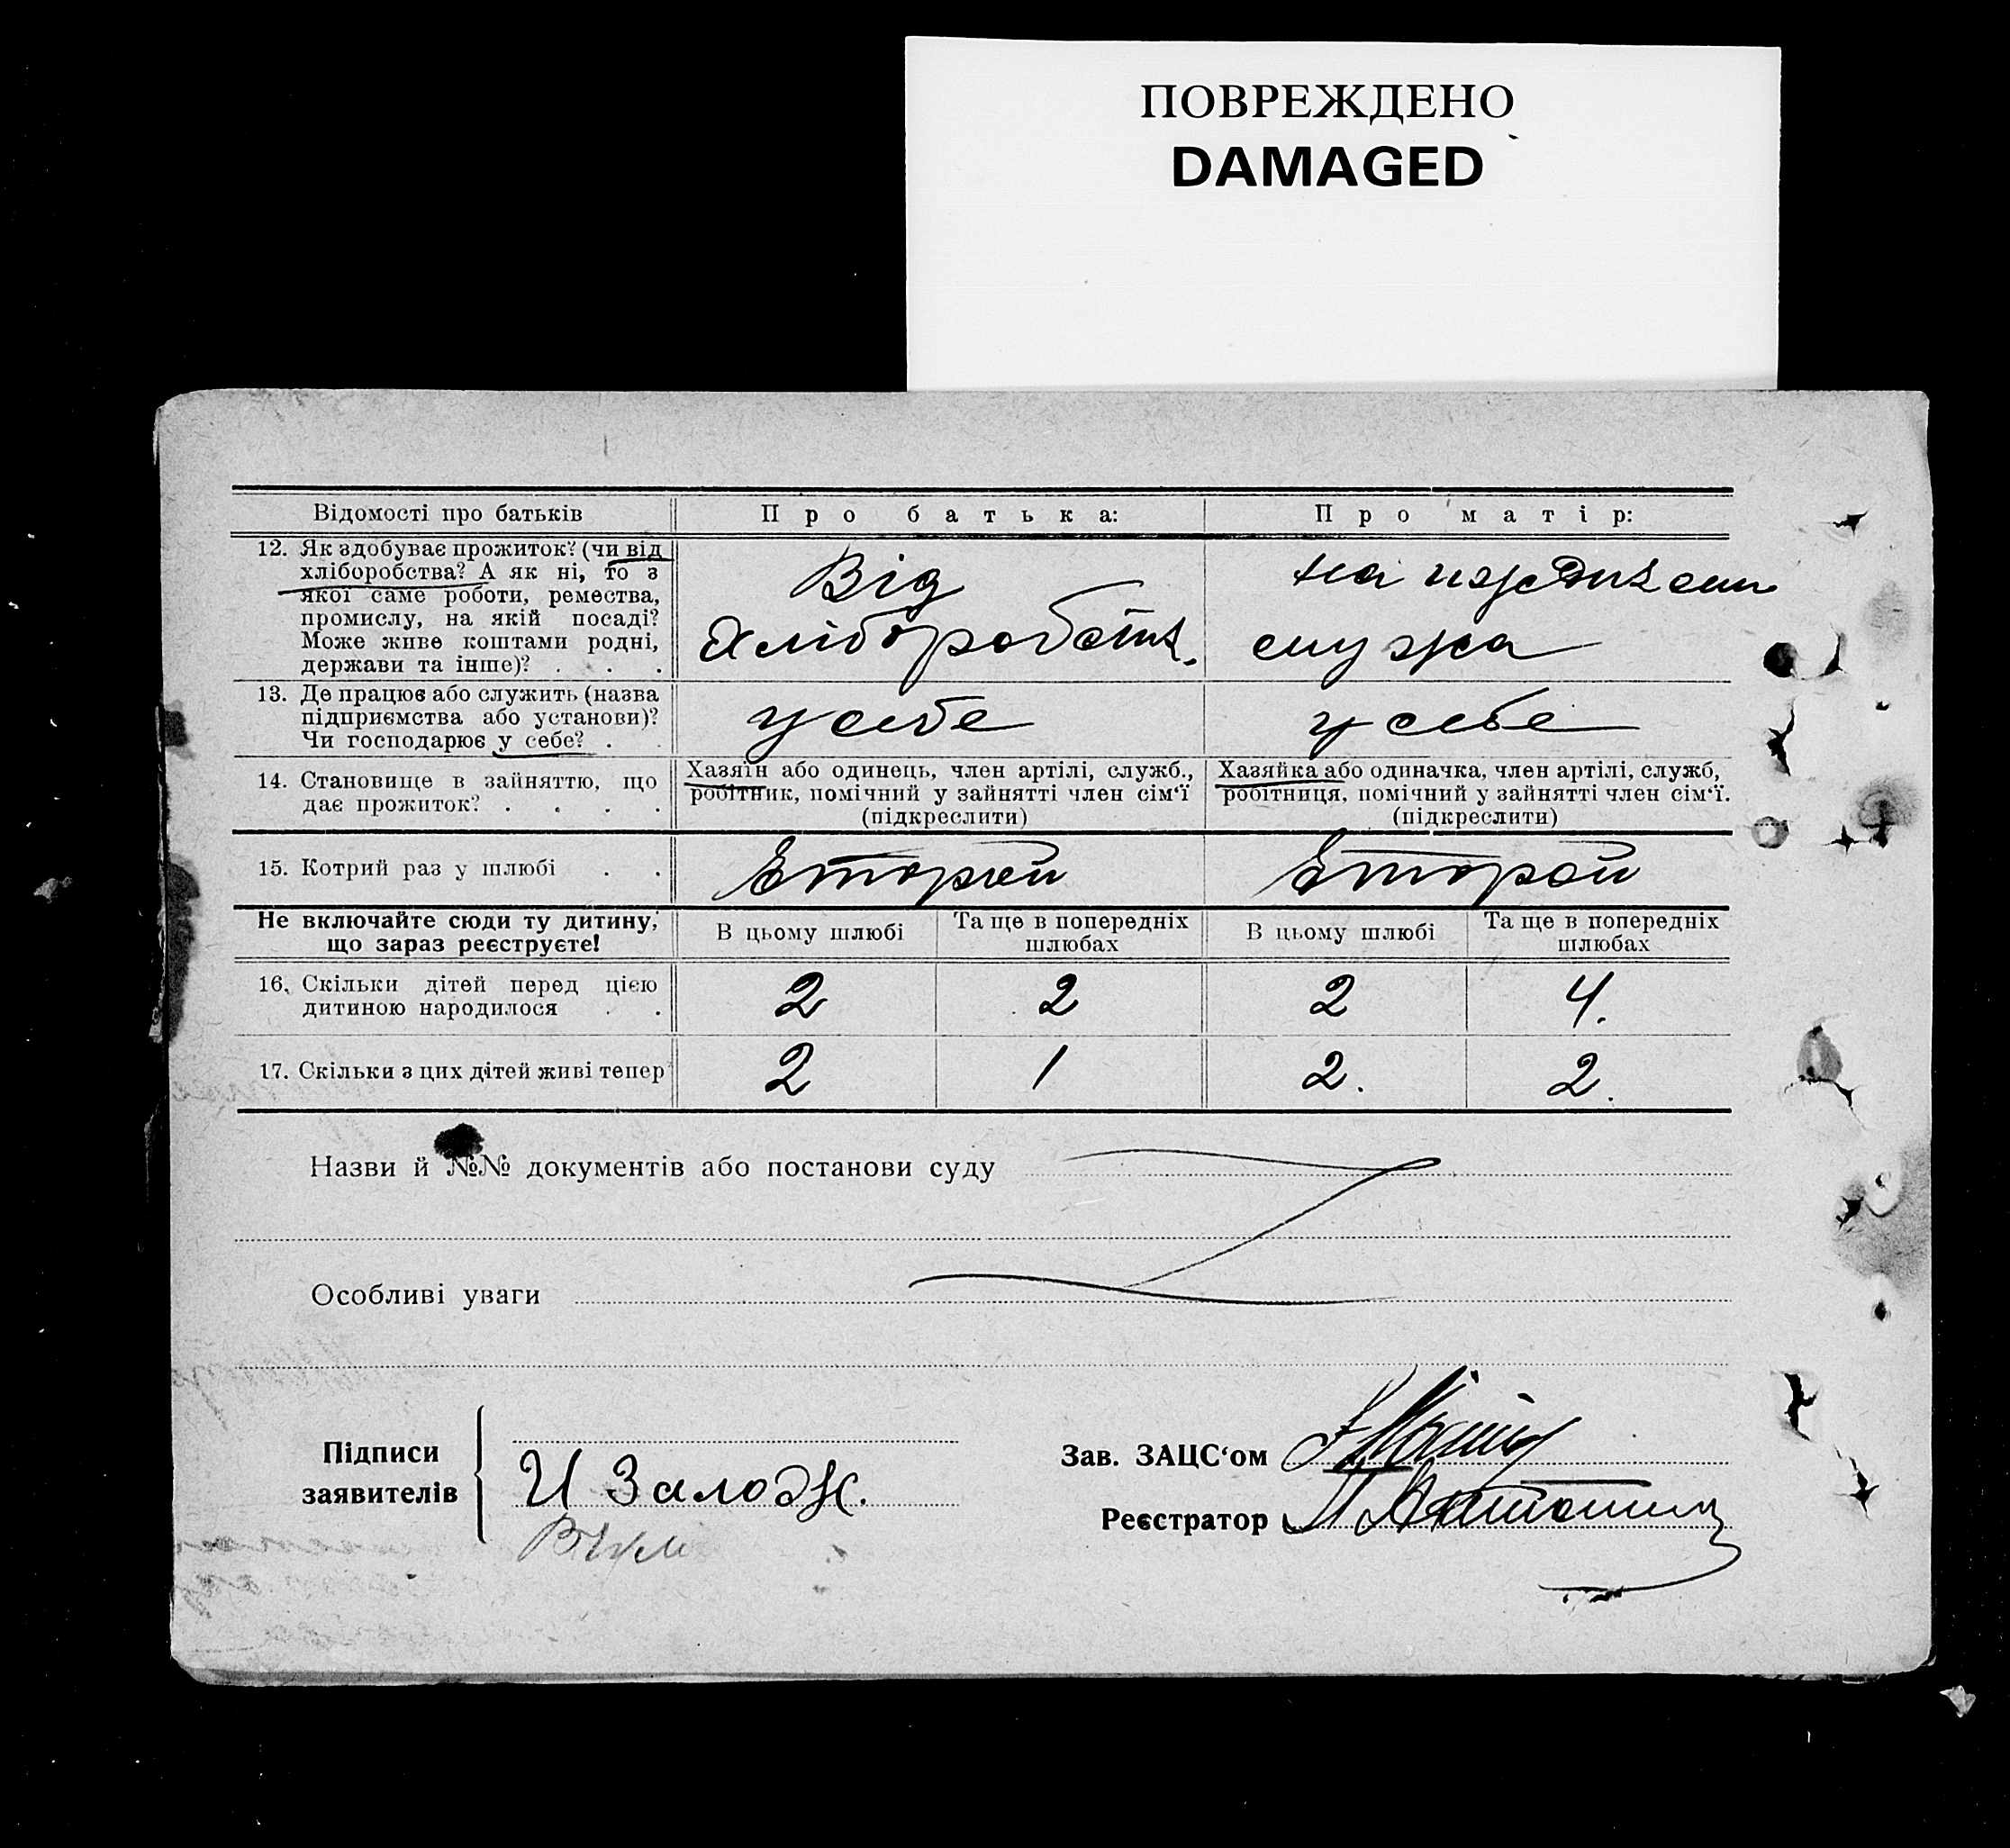 ПОВРЕЖДЕНО
DAMAGED
Відомості про батьків
Про батька:
Про матір:
12. Як здобуває прожиток? (чи від
хліборобства? А як ні, то з
якої саме роботи, ремества,
промислу, на якій посаді?
Може живе коштами родні,
держави та інше)? . . .
Від
Хлібороботв.
на
мужа
13. Де працює або служить (назва
підприємства або установи)?
Чи господарює у себе? . .
у себе
у себе
14. Становище в зайняттю, що
дає прожиток? . . . .
Хазяїн або одинець, член артілі, служб.,
робітник, помічний у зайнятті член сім'ї
(підкреслити)
Хазяйка або одиначка, член артілі, служб,
робітниця, помічний у зайнятті член сім'ї.
(підкреслити)
15. Котрий раз у шлюбі . .
Второй
Второй
Не включайте сюди ту дитину,
що зараз реєструєте!
В цьому шлюбі
Та ще в попередніх
шлюбах
В цьому шлюбі
Та ще в попередніх
шлюбах
16. Скільки дітей перед цією
дитиною народилося . .
2
2
2
4.
17. Скільки з цих дітей живі тепер
2
1
2.
2.
Назви й №№ документів або постанови суду
Особливі уваги
Підписи
заявителів
И Залодж.
Зав. ЗАЦС'ом
Реєстратор